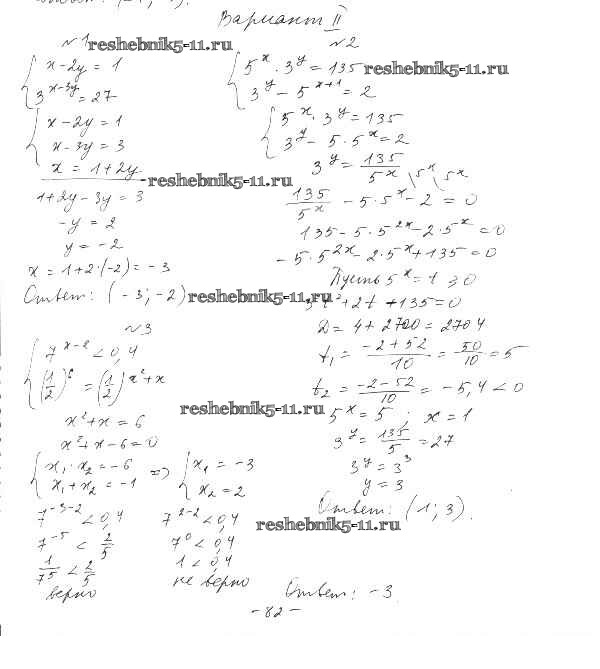 Вариант II
№1
reshebnik5-11.ru
x - 2y = 1
3^{x-3y} = 27
x - 2y = 1
x - 3y = 3
x = 1 + 2y
reshebnik5-11.ru
1 + 2y - 3y = 3
-y = 2
y = -2
x = 1 + 2·(-2) = -3
Ответ: (-3; -2)
reshebnik5-11.ru
№2
5^x · 3^y = 135
reshebnik5-11.ru
3^y - 5^{x+1} = 2
5^x · 3^y = 135
3^y - 5·5^x = 2
3^y = 135/5^x
135/5^x - 5·5^x - 2 = 0
135 - 5·5^{2x} - 2·5^x = 0
-5·5^{2x} - 2·5^x + 135 = 0
Пусть 5^x = t > 0
t² + 2t + 135 = 0
D = 4 + 2700 = 2704
t₁ = (-2 + 52)/10 = 50/10 = 5
t₂ = (-2 - 52)/10 = -5,4 < 0
5^x = 5 x = 1
3^y = 135/5 = 27
3^y = 3^3
y = 3
Ответ: (1; 3).
№3
7^{x-2} < 0,4
(1/2)^6 = (1/2)^{x²+x}
reshebnik5-11.ru
x² + x = 6
x² + x - 6 = 0
x₁ · x₂ = -6 => x₁ = -3
x₁ + x₂ = -1 x₂ = 2
7^{-3-2} < 0,4 7^{2-2} < 0,4
reshebnik5-11.ru
7^{-5} < 2/5 7^0 < 0,4
1/7^5 < 2/5 1 < 0,4
верно не верно
Ответ: -3.
-82-